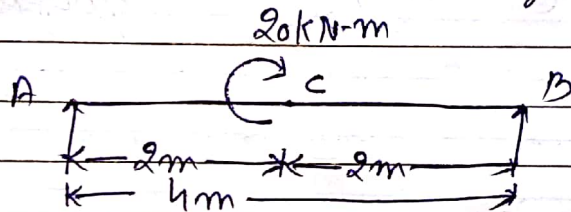 20kN-m
A C B
2m 2m
4m